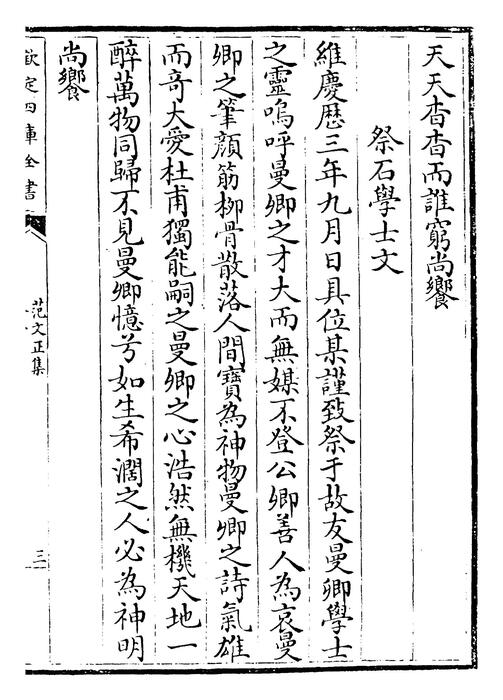 天天杳杳而誰窮尚饗
祭石學士文
維慶歴三年九月日具位某謹致祭于故友曼卿學士
之靈嗚呼曼卿之才大而無媒不登公卿善人為哀曼
卿之筆顔筋柳骨散落人間寶為神物曼卿之詩氣雄
而竒大愛杜甫獨能嗣之曼卿之心浩然無機天地一
醉萬物同歸不見曼卿憶兮如生希濶之人必為神明
尚饗
欽定四庫全書
范文正集
三